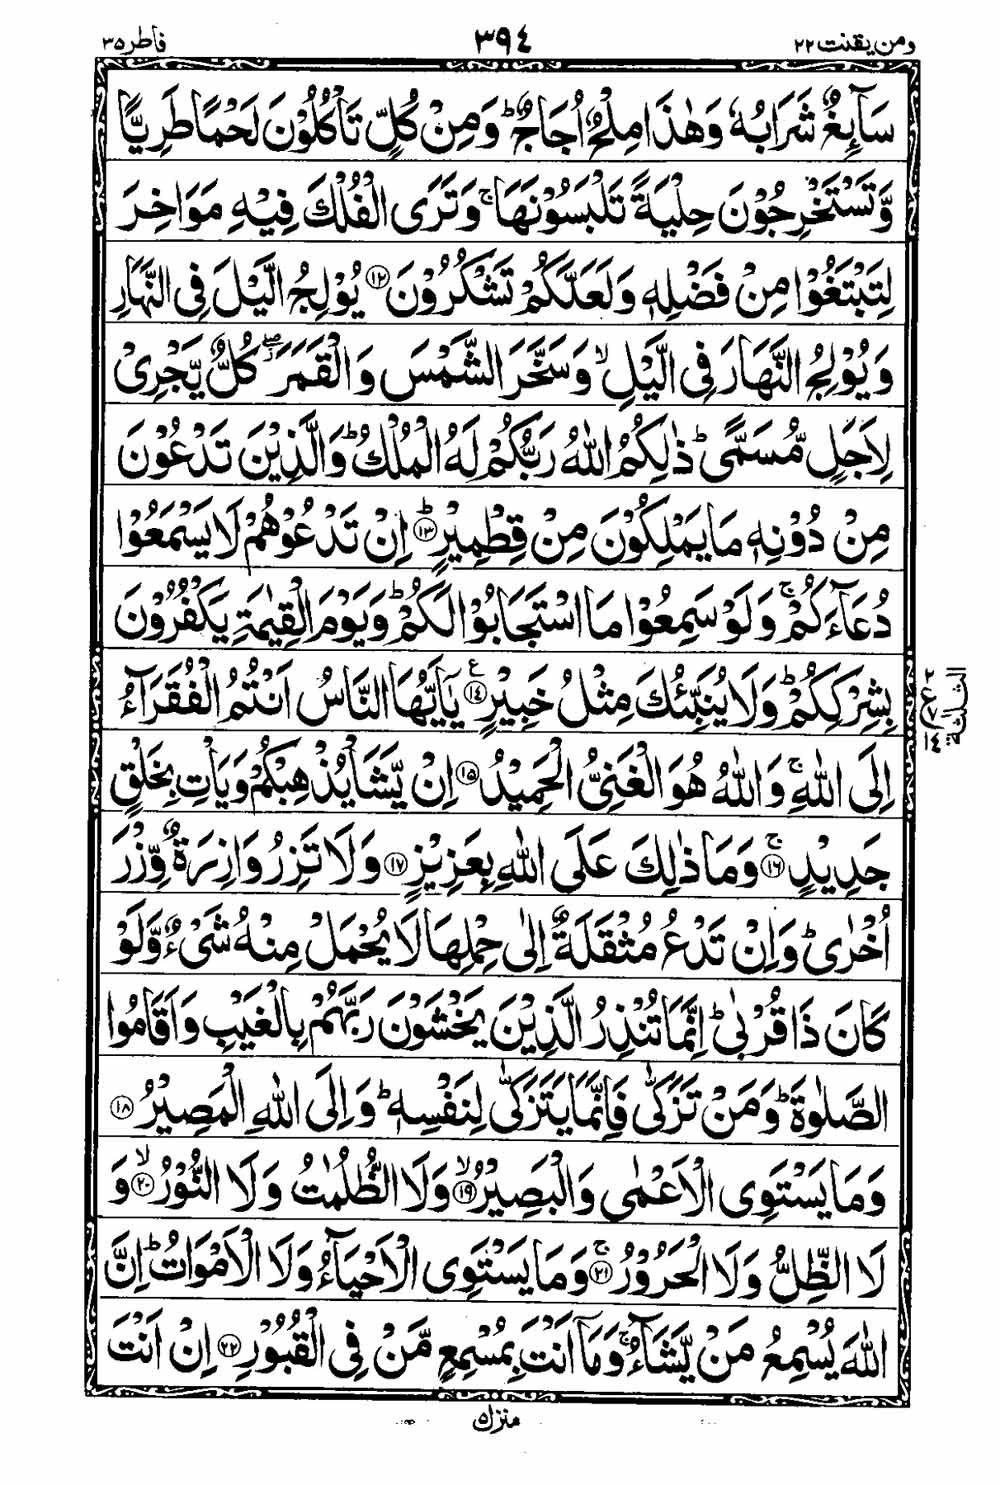 ومن يقنت ٢٢
٣٩٤
فاطر ٣٥
سَآئِغٌ شَرَابُهٗ وَهٰذَا مِلْحٌ اُجَاجٌ ؕ وَمِنْ كُلٍّ تَاْكُلُوْنَ لَحْمًا طَرِيًّا
وَّتَسْتَخْرِجُوْنَ حِلْيَةً تَلْبَسُوْنَهَا ۚ وَتَرَى الْفُلْكَ فِيْهِ مَوَاخِرَ
لِتَبْتَغُوْا مِنْ فَضْلِهٖ وَلَعَلَّكُمْ تَشْكُرُوْنَ ﴿١٢﴾ يُوْلِجُ الَّيْلَ فِى النَّهَارِ
وَيُوْلِجُ النَّهَارَ فِى الَّيْلِ ۙ وَسَخَّرَ الشَّمْسَ وَالْقَمَرَ ۖ كُلٌّ يَّجْرِىْ
لِاَجَلٍ مُّسَمًّى ؕ ذٰلِكُمُ اللّٰهُ رَبُّكُمْ لَهُ الْمُلْكُ ؕ وَالَّذِيْنَ تَدْعُوْنَ
مِنْ دُوْنِهٖ مَا يَمْلِكُوْنَ مِنْ قِطْمِيْرٍ ؕ﴿١٣﴾ اِنْ تَدْعُوْهُمْ لَا يَسْمَعُوْا
دُعَآءَكُمْ ۚ وَلَوْ سَمِعُوْا مَا اسْتَجَابُوْا لَكُمْ ؕ وَيَوْمَ الْقِيٰمَةِ يَكْفُرُوْنَ
بِشِرْكِكُمْ ؕ وَلَا يُنَبِّئُكَ مِثْلُ خَبِيْرٍ ﴿١٤﴾ ع يٰۤاَيُّهَا النَّاسُ اَنْتُمُ الْفُقَرَآءُ
اِلَى اللّٰهِ ۚ وَاللّٰهُ هُوَ الْغَنِىُّ الْحَمِيْدُ ﴿١٥﴾ اِنْ يَّشَاْ يُذْهِبْكُمْ وَيَاْتِ بِخَلْقٍ
جَدِيْدٍ ۚ﴿١٦﴾ وَمَا ذٰلِكَ عَلَى اللّٰهِ بِعَزِيْزٍ ﴿١٧﴾ وَلَا تَزِرُ وَازِرَةٌ وِّزْرَ
اُخْرٰى ؕ وَاِنْ تَدْعُ مُثْقَلَةٌ اِلٰى حِمْلِهَا لَا يُحْمَلْ مِنْهُ شَىْءٌ وَّلَوْ
كَانَ ذَا قُرْبٰى ؕ اِنَّمَا تُنْذِرُ الَّذِيْنَ يَخْشَوْنَ رَبَّهُمْ بِالْغَيْبِ وَاَقَامُوا
الصَّلٰوةَ ؕ وَمَنْ تَزَكّٰى فَاِنَّمَا يَتَزَكّٰى لِنَفْسِهٖ ؕ وَاِلَى اللّٰهِ الْمَصِيْرُ ﴿١٨﴾
وَمَا يَسْتَوِى الْاَعْمٰى وَالْبَصِيْرُ ۙ﴿١٩﴾ وَلَا الظُّلُمٰتُ وَلَا النُّوْرُ ۙ﴿٢٠﴾ وَ
لَا الظِّلُّ وَلَا الْحَرُوْرُ ۚ﴿٢١﴾ وَمَا يَسْتَوِى الْاَحْيَآءُ وَلَا الْاَمْوَاتُ ؕ اِنَّ
اللّٰهَ يُسْمِعُ مَنْ يَّشَآءُ ۚ وَمَاۤ اَنْتَ بِمُسْمِعٍ مَّنْ فِى الْقُبُوْرِ ﴿٢٢﴾ اِنْ اَنْتَ
الثلثة
٢
ع
٧
١٤